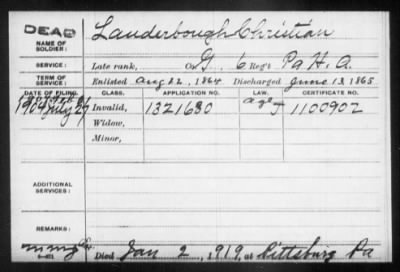 DEAD
NAME OF SOLDIER:
Lauderbough Christian
SERVICE:
Late rank, Co G, 6 Reg't Pa H. A.
TERM OF SERVICE:
Enlisted Aug 22, 1864 Discharged June 13, 1865
DATE OF FILING. CLASS. APPLICATION NO. LAW. CERTIFICATE NO.
1904 July 27 Invalid, 1321680 1100902
Widow,
Minor,
ADDITIONAL SERVICES:
REMARKS:
Died Jan 2, 1919, at Pittsburg Pa